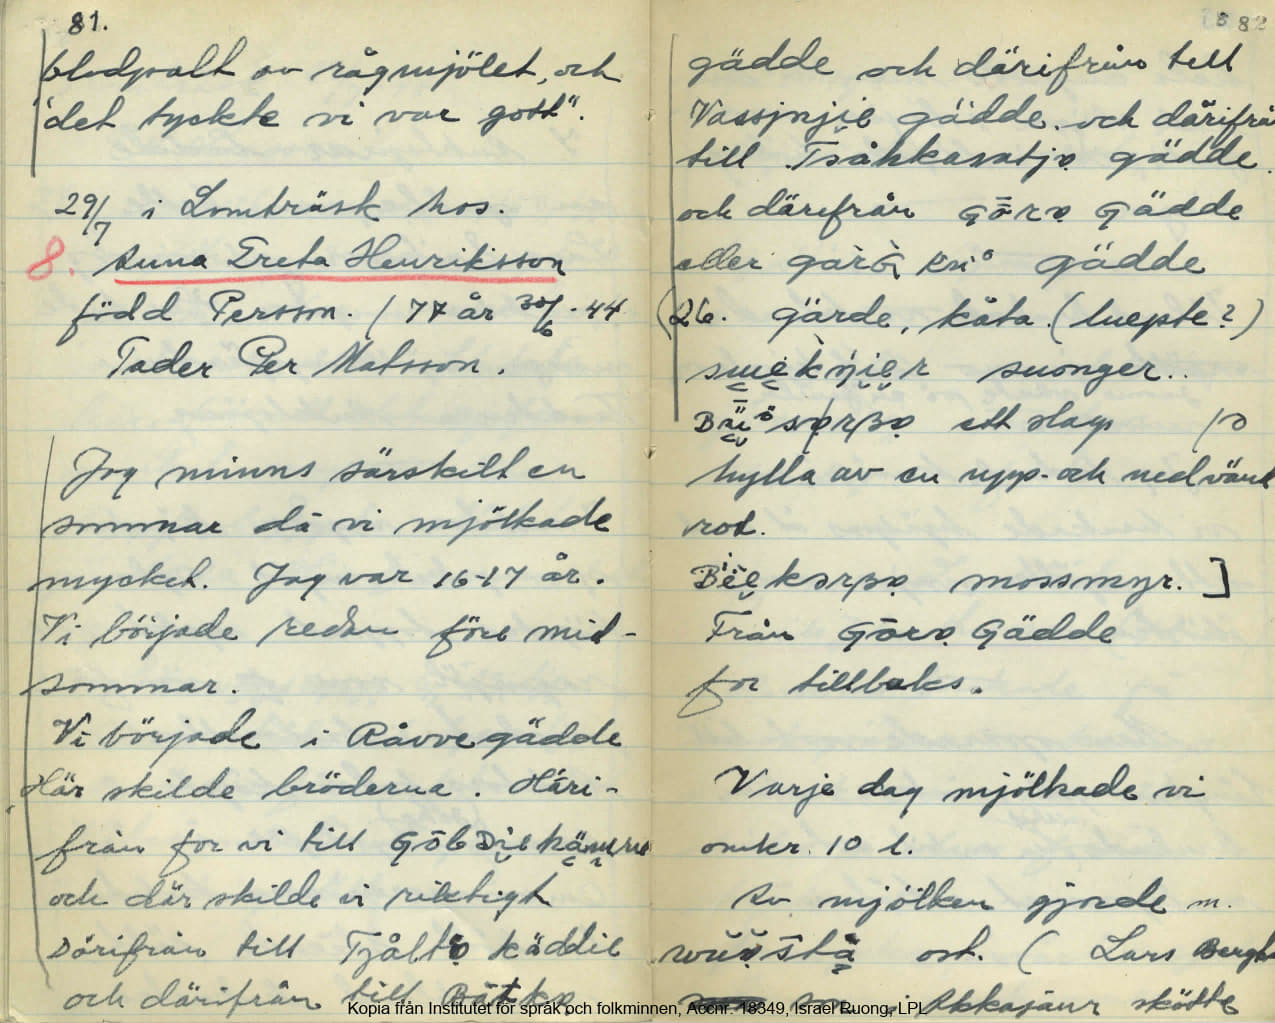 81.
blodpalt av rågmjölet, och
"det tyckte vi var gott".
29/7 i Lomträsk hos.
8. Anna Greta Henriksson
född Persson. / 77 år 30/6 -44
Fader Per Matsson.
Jag minns särskilt en
sommar då vi mjölkade
mycket. Jag var 16-17 år.
Vi började redan före mid-
sommar.
Vi började i Råvvegädde
Här skilde bröderna. Häri-
från for vi till
och där skilde vi riktigt
Därifrån till
och därifrån till
82
gädde och därifrån till
gädde. och därifrån
till gädde.
och därifrån Gōrɒ Gädde
eller gädde
(26. gärde, kåta. (luepte?)
suonger..
ett slags
hylla av en upp- och nedvänd
rot.
mossmyr. ]
Från Gōrɒ Gädde
for tillbaks.
Varje dag mjölkade vi
omkr. 10 l.
Av mjölken gjorde m.
ost. ( Lars
i Akkajaur skötte
Kopia från Institutet för språk och folkminnen, Accnr. 18349, Israel Ruong, LPL